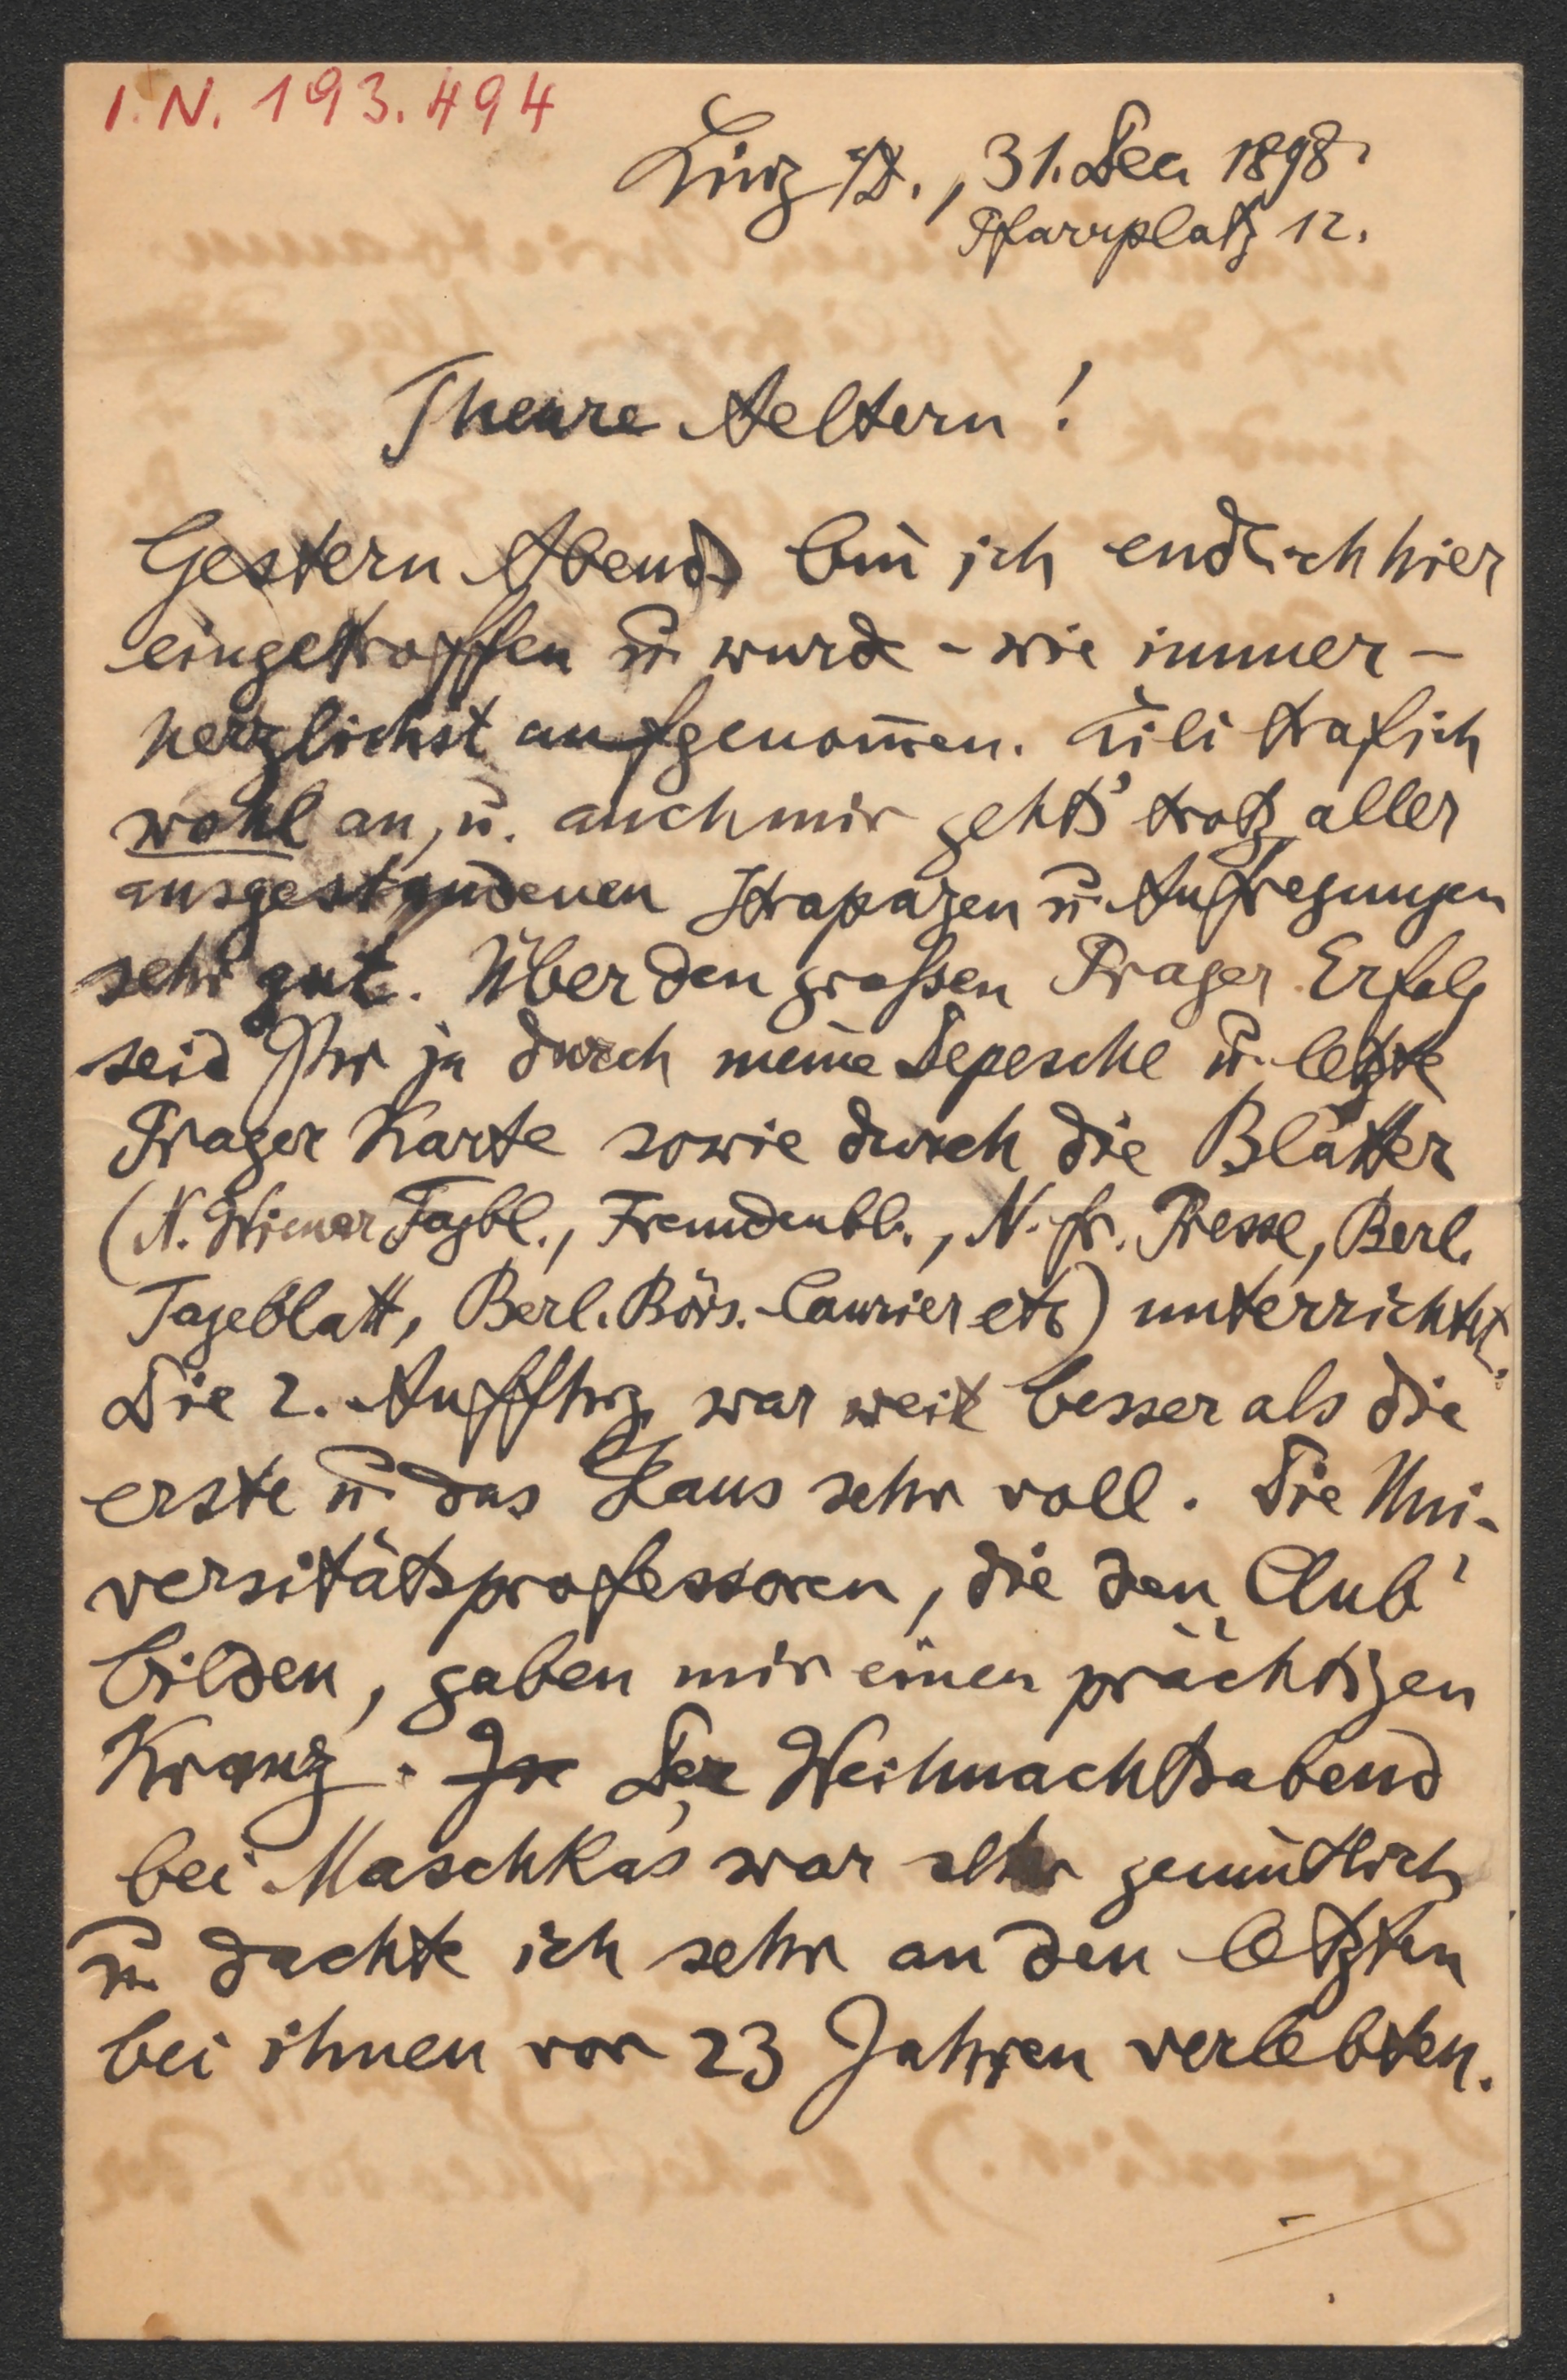 I. N. 193.494
Linz a/D., 31. Dec 1898.
Pfarrplatz 12.
Theure Aeltern!
Gestern Abend bin ich endlich hier
eingetroffen u. wurde - wie immer -
herzlichst aufgenom̅en. Lili traf ich
wohl an, u. auch mir geht's trotz aller
ausgestandenen Strapazen u. Aufregungen
sehr gut. Über den grossen Prager Erfolg
seid Ihr ja durch meine Depesche u. letzte
Prager Karte sowie durch die Blätter
(N. Wiener Tagbl., Fremdenbl., N. fr. Presse, Berl.
Tageblatt, Berl. Börs.-Courier etc) unterrichtet.
Die 2. Aufführg. war weit besser als die
erste u. das Haus sehr voll. Die Uni-
versitätsprofessoren, die den „Club'
bilden, gaben mir einen prächtigen
Kranz. Der Weihnachtsabend
bei Maschkas war sehr gemütlich
u. dachte ich sehr an den letzten
bei ihnen vor 23 Jahren verlebten.